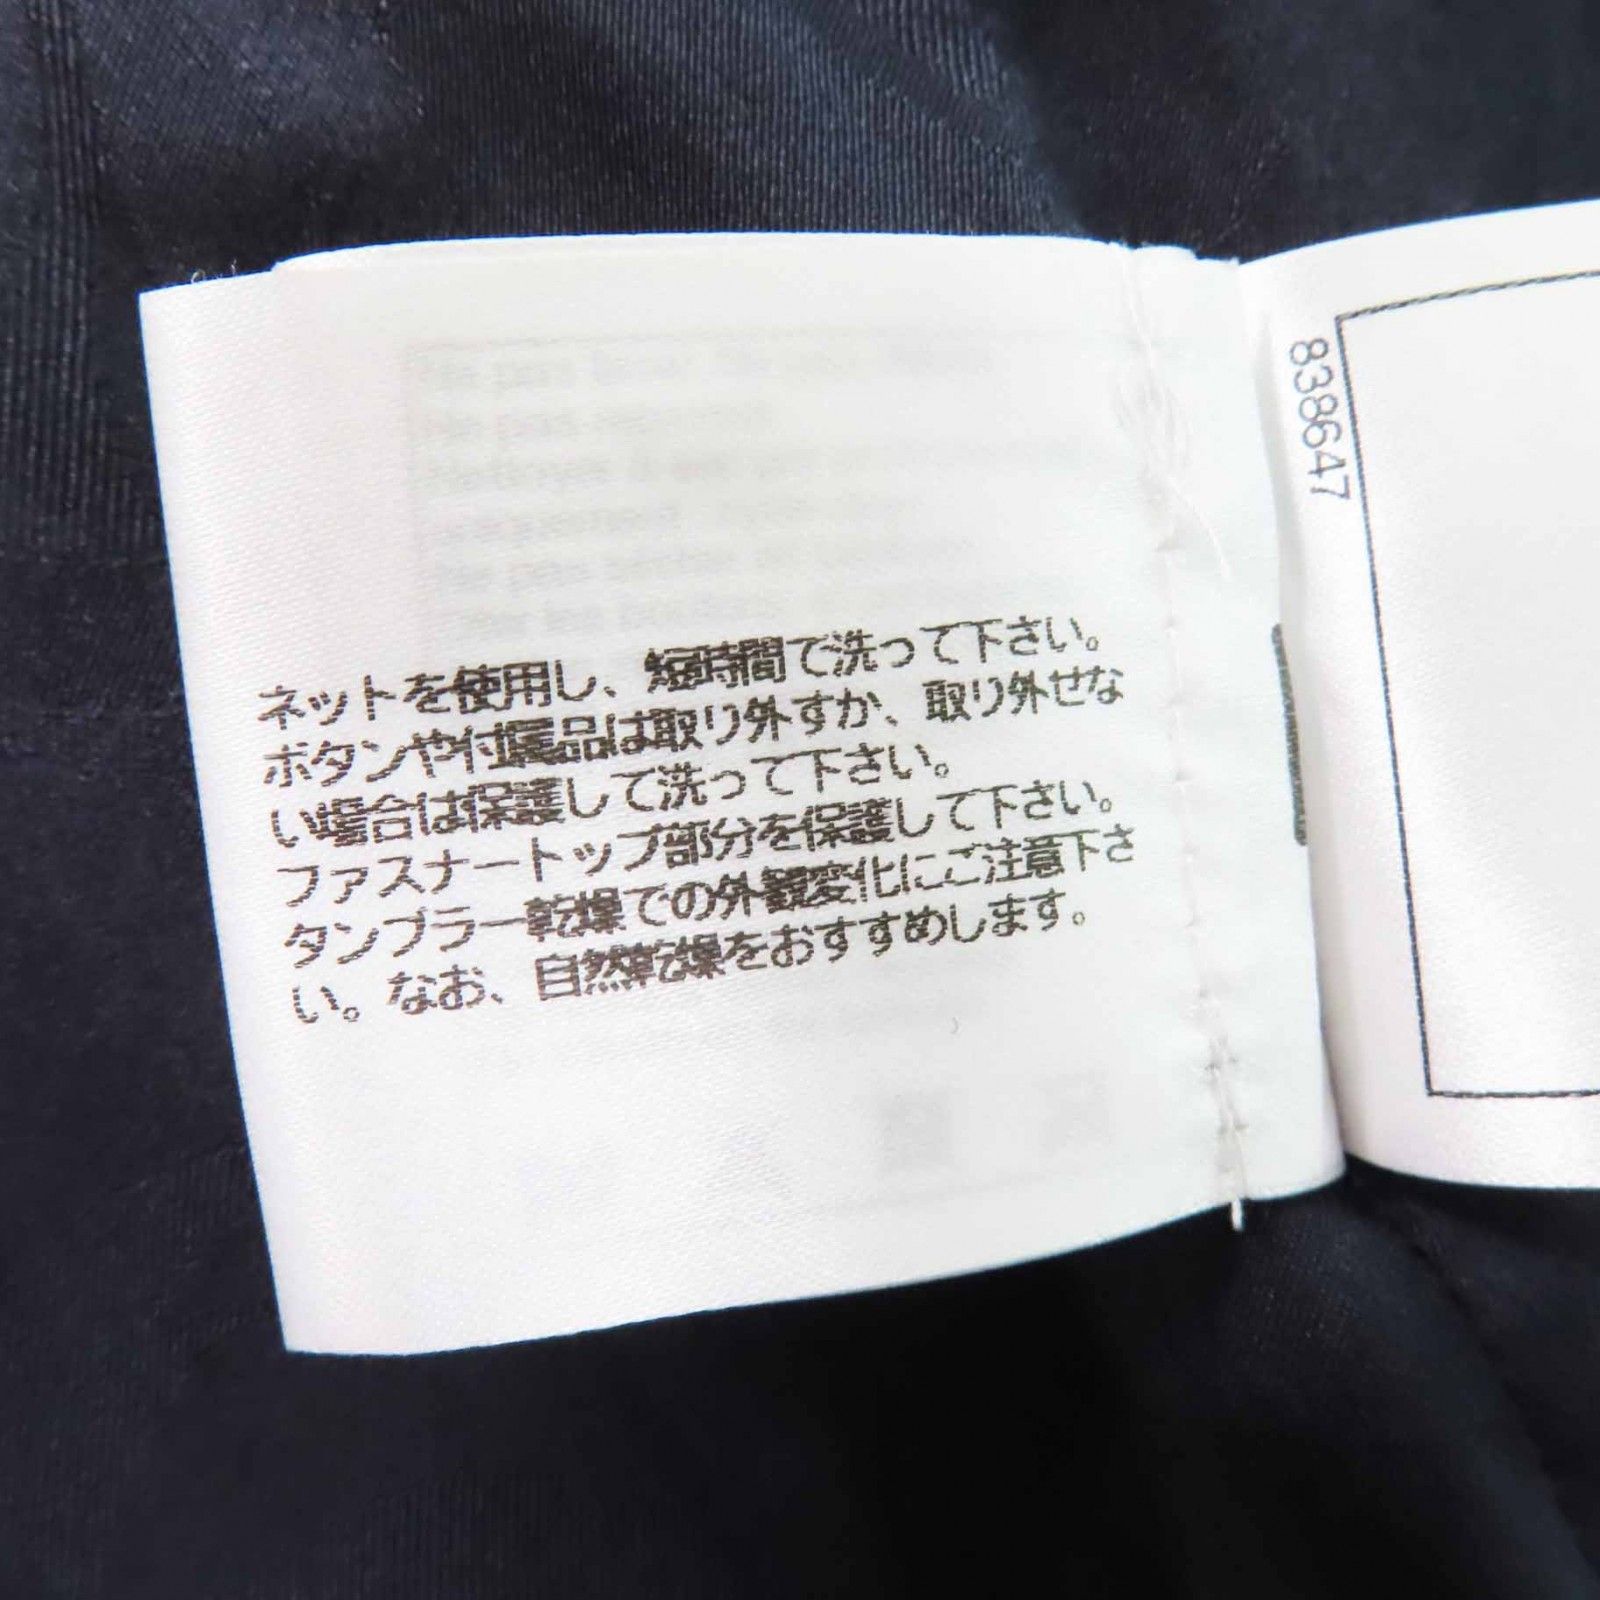 ネットを使用し、短時間で洗って下さい。
ボタンや付属品は取り外すか、取り外せな
い場合は保護して洗って下さい。
ファスナートップ部分を保護して下さい。
タンブラー乾燥での外観変化にご注意下さ
い。なお、自然乾燥をおすすめします。
838647